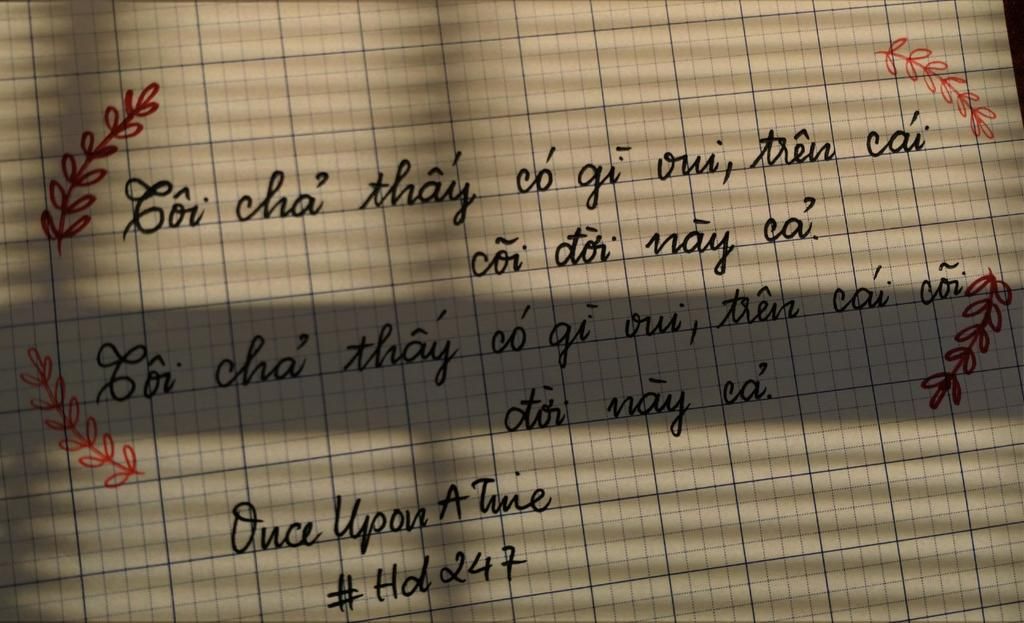 Tôi chả thấy có gì vui, trên cái
cõi đời này cả.
Tôi chả thấy có gì vui, trên cái cõi
đời này cả.
Once Upon A Time
# Hd 247